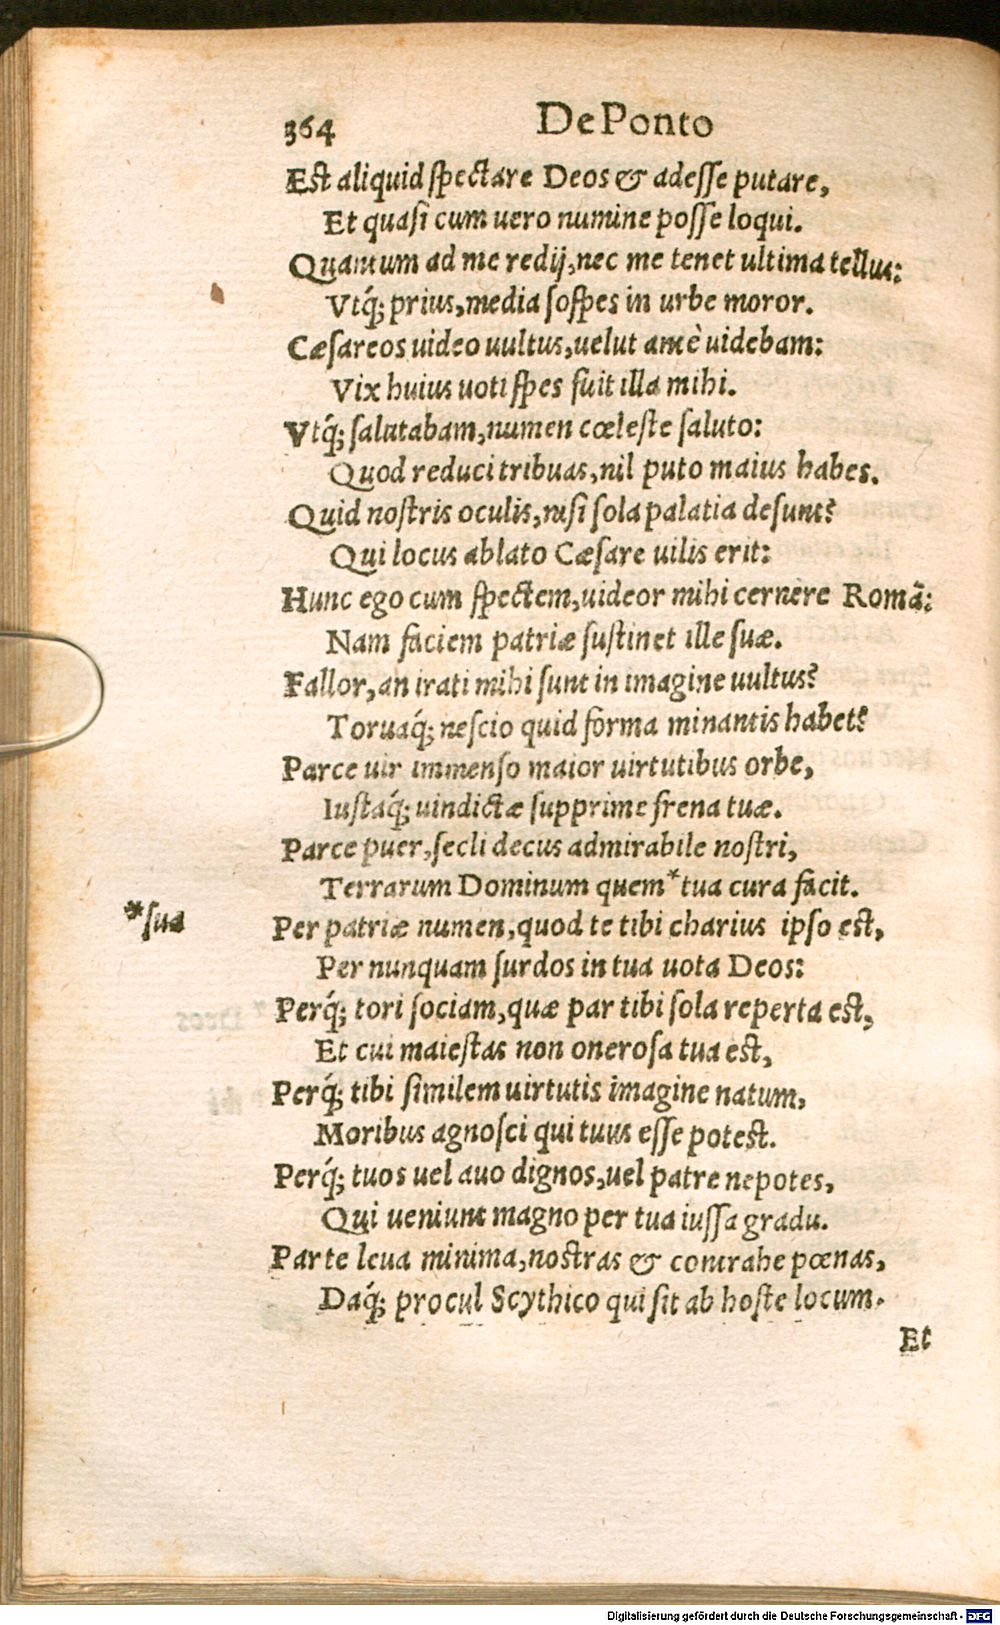 364 De Ponto
Est aliquid spectare Deos & adesse putare,
Et quasi cum uero numine posse loqui.
Quantum ad me redij, nec me tenet ultima tellus:
Vtq́; prius, media sospes in urbe moror.
Cæsareos uideo uultus, uelut antè uidebam:
Vix huius uoti spes fuit illa mihi.
Vtq́; salutabam, numen cœleste saluto:
Quod reduci tribuas, nil puto maius habes.
Quid nostris oculis, nisi sola palatia desunt?
Qui locus ablato Cæsare uilis erit:
Hunc ego cum spectem, uideor mihi cernere Romã:
Nam faciem patriæ sustinet ille suæ.
Fallor, an irati mihi sunt in imagine uultus?
Toruaq́; nescio quid forma minantis habet?
Parce uir immenso maior uirtutibus orbe,
Iustaq́; uindictæ supprime frena tuæ.
Parce puer, secli decus admirabile nostri,
Terrarum Dominum quem *tua cura facit.
*sua
Per patriæ numen, quod te tibi charius ipso est,
Per nunquam surdos in tua uota Deos:
Perq́; tori sociam, quæ par tibi sola reperta est,
Et cui maiestas non onerosa tua est,
Perq́; tibi similem uirtutis imagine natum,
Moribus agnosci qui tuus esse potest.
Perq́; tuos uel auo dignos, uel patre nepotes,
Qui ueniunt magno per tua iussa gradu.
Parte leua minima, nostras & contrahe pœnas,
Daq́; procul Scythico qui sit ab hoste locum.
Et
Digitalisierung gefördert durch die Deutsche Forschungsgemeinschaft - DFG